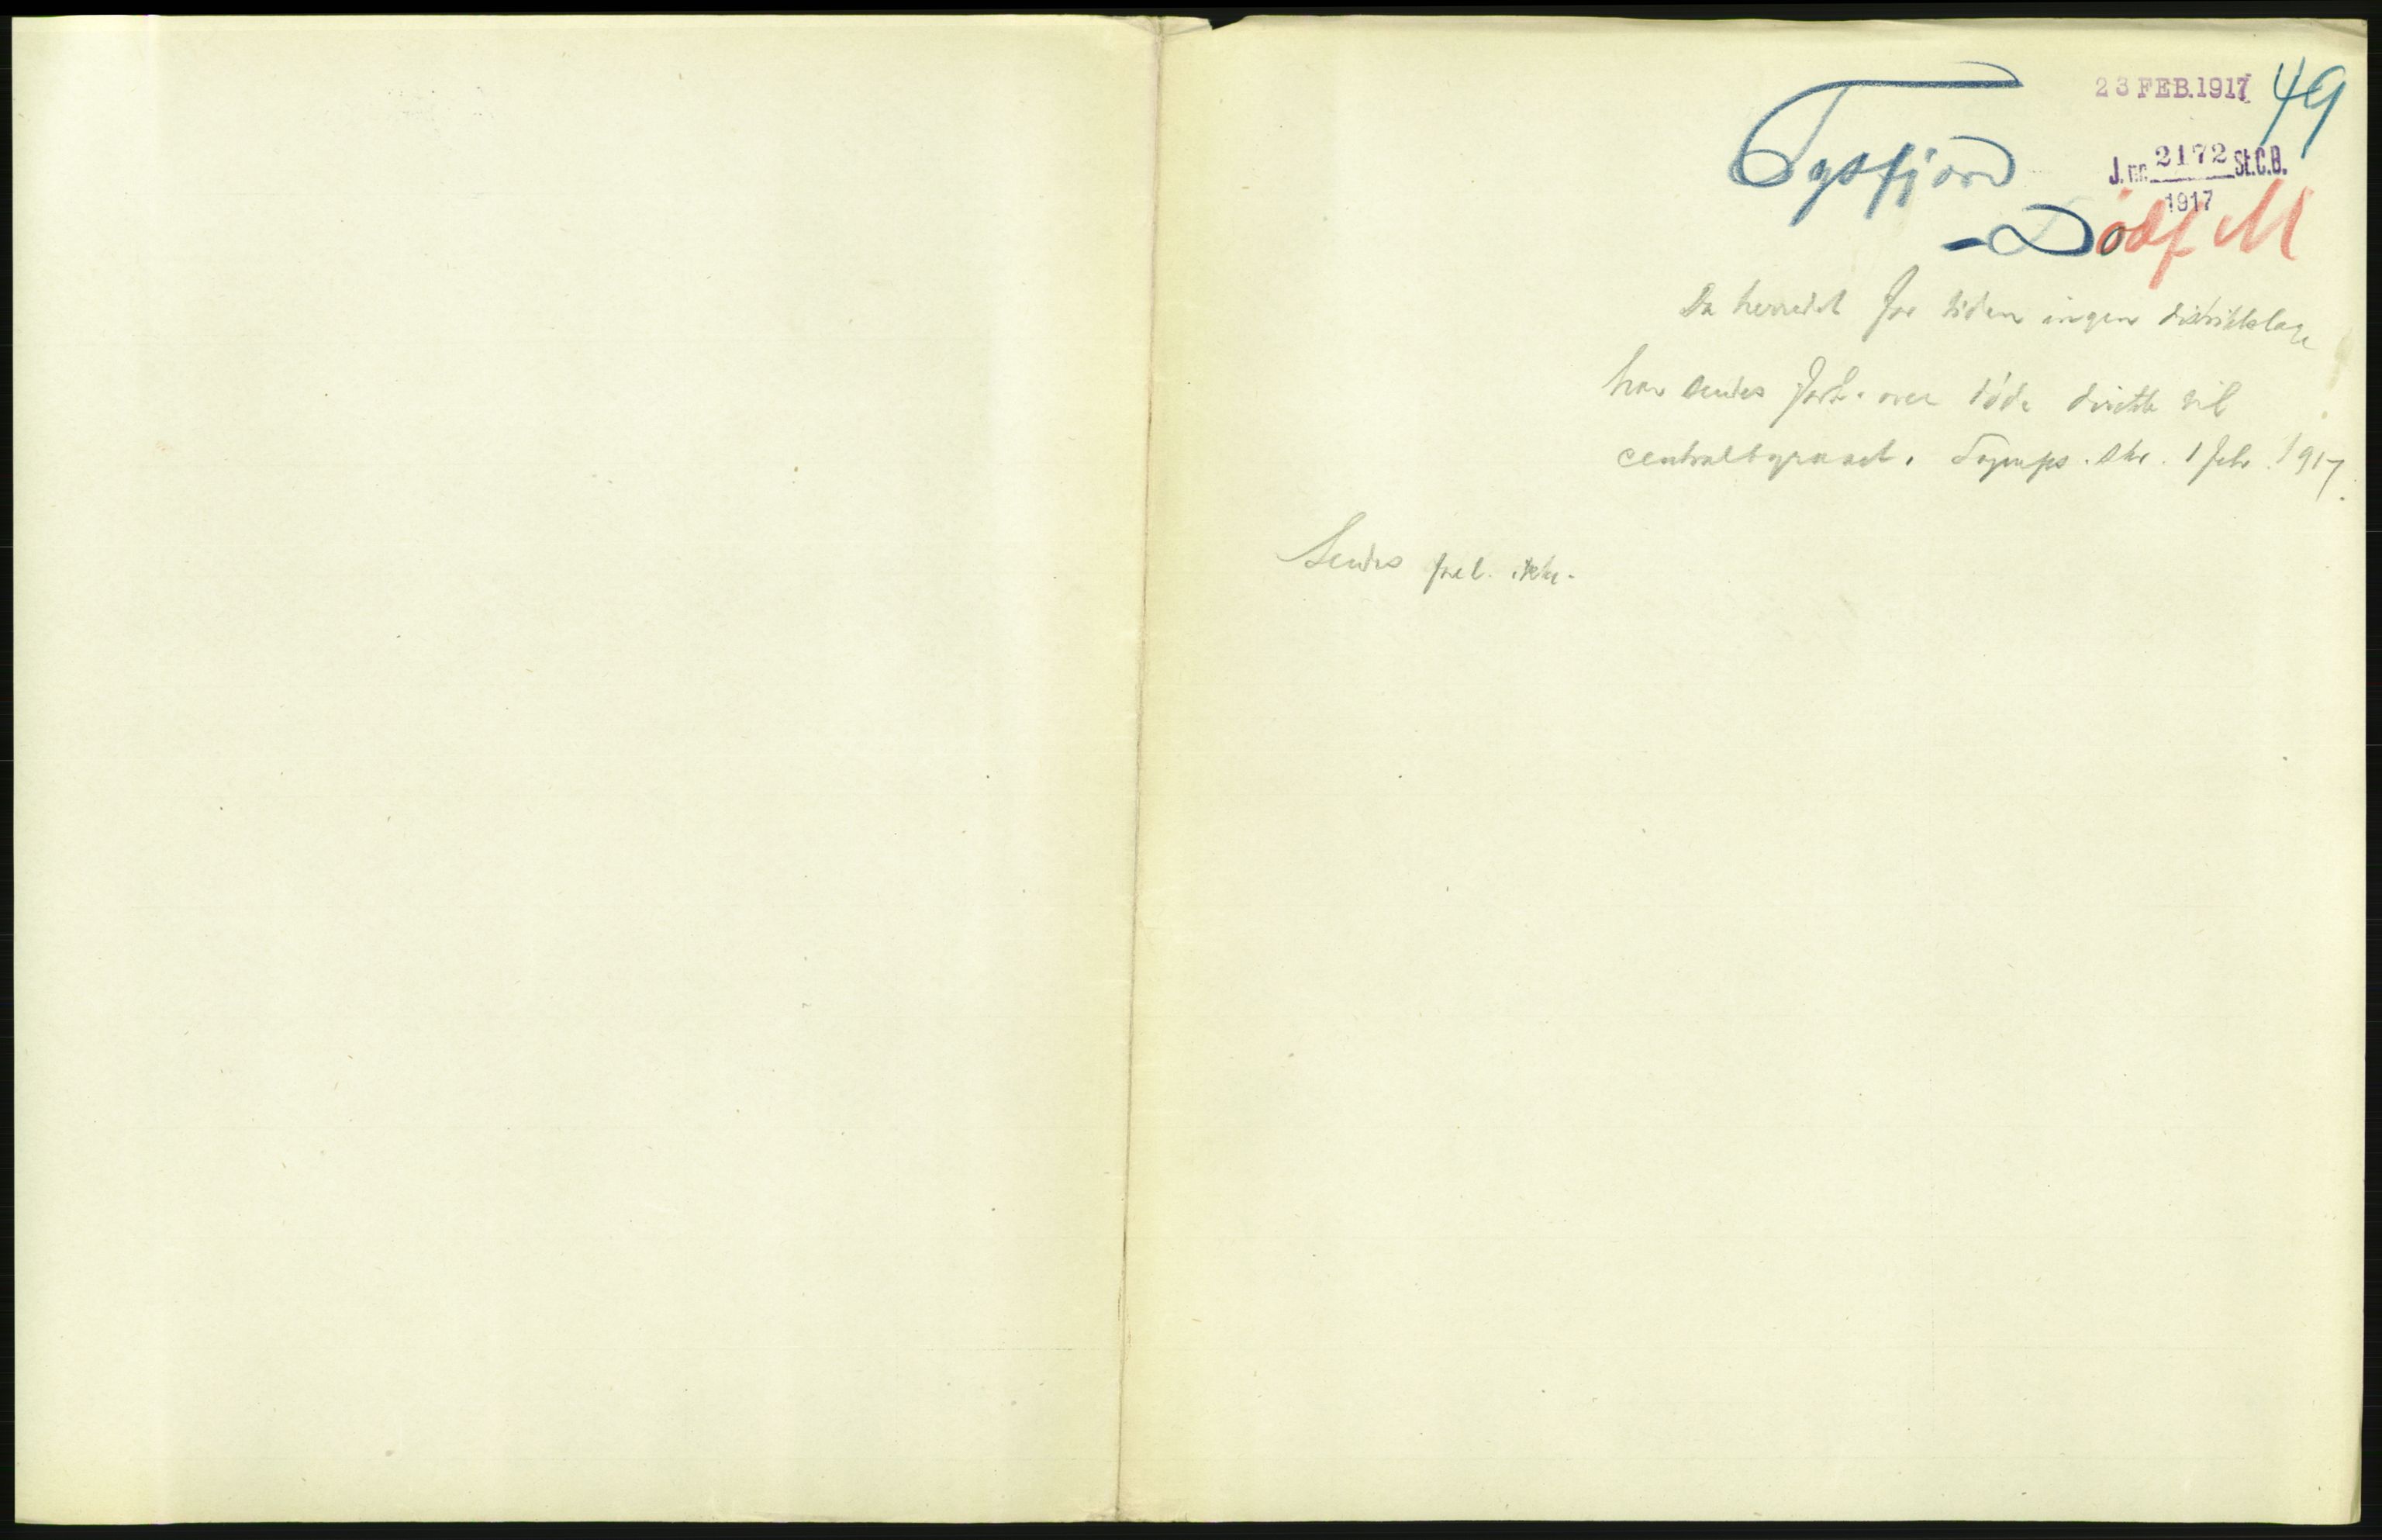 23 FEB. 1917 49
Tysfjord
J. nr. 2172 St.C.B.
1917
- Dødf M
Da herredet for tiden ingen distriktslæge
har sendes fort. over døde direkte til
centralbyraaet. 1 febr. 1917.
Sendes